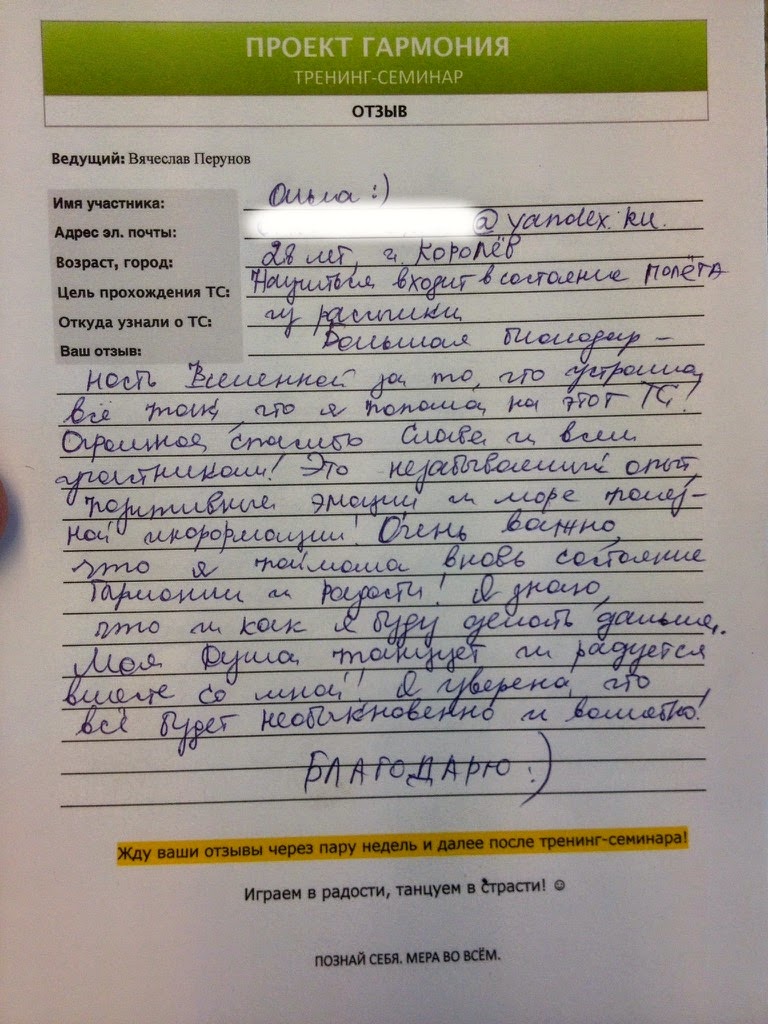 ПРОЕКТ ГАРМОНИЯ
ТРЕНИНГ-СЕМИНАР
ОТЗЫВ
Ведущий: Вячеслав Перунов
Имя участника: Ольга :)
Адрес эл. почты: @yandex.ru.
Возраст, город: 28 лет, г. Королёв
Цель прохождения ТС: Научиться входит в состояние полёта
Откуда узнали о ТС: из рассылки
Ваш отзыв: Большая благодар-
ность Вселенной за то, что устроила
всё так, что я попала на этот ТС!
Огромное спасибо Славе и всем
участникам! Это незабываемый опыт,
позитивные эмоции и море полез-
ной информации! Очень важно,
что я поймала вновь состояние
Гармонии и радости! Я знаю,
что и как я буду делать дальше.
Моя Душа танцует и радуется
вместе со мной! Я уверена, что
всё будет необыкновенно и волшебно!
БЛАГОДАРЮ :)
Жду ваши отзывы через пару недель и далее после тренинг-семинара!
Играем в радости, танцуем в страсти! ☺
ПОЗНАЙ СЕБЯ. МЕРА ВО ВСЁМ.